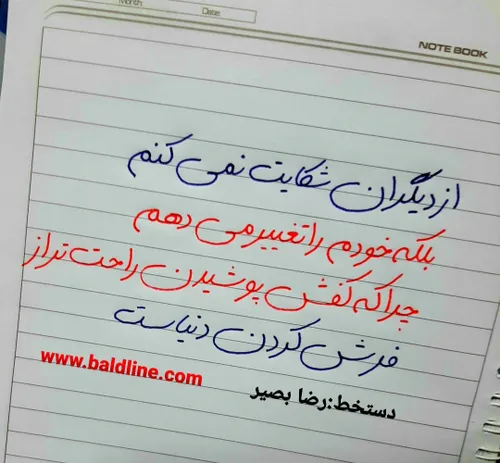 Month
Date
NOTE BOOK
از دیگران شکایت نمی کنم
بلکه خودم را تغییر می دهم
چرا که کفش پوشیدن راحت تر از
فرش کردن دنیاست
www.baldline.com
دستخط:رضا بصیر